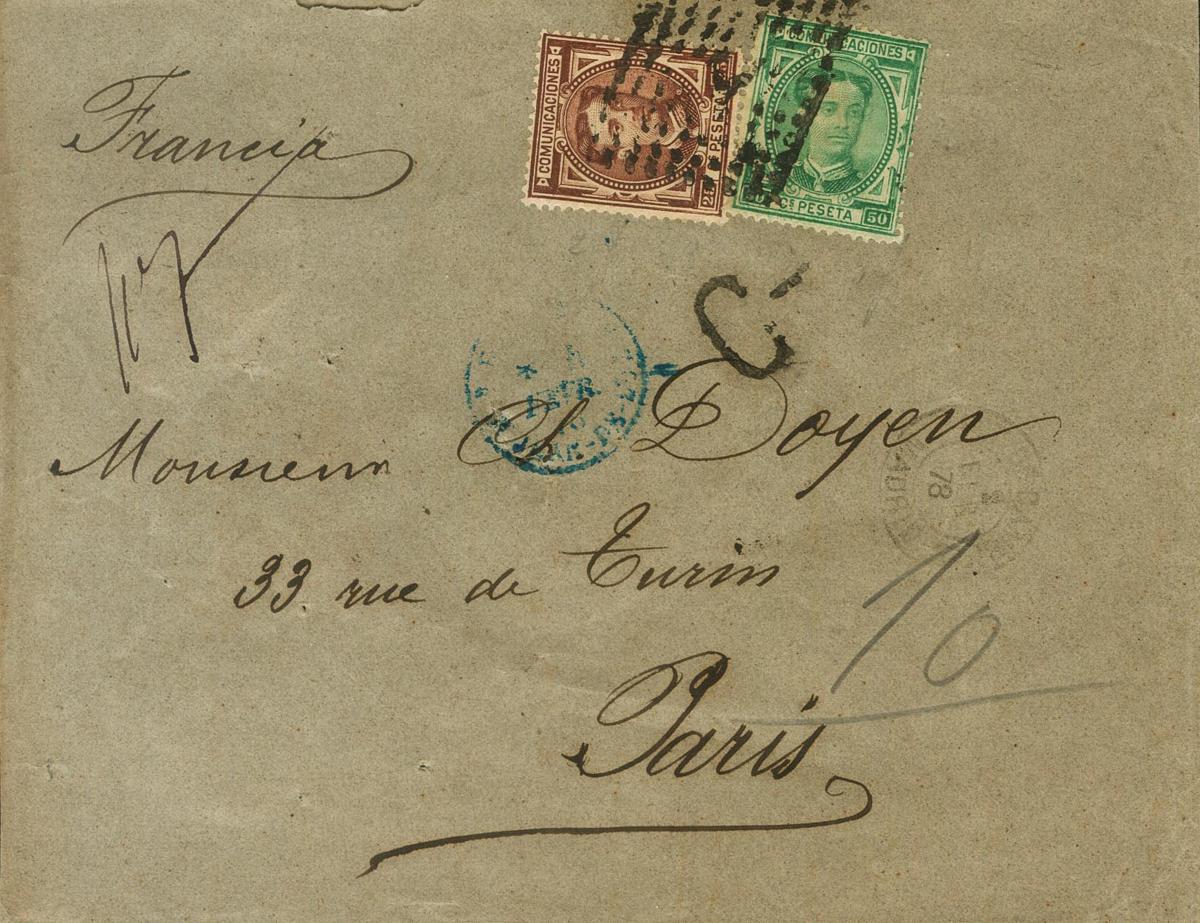 Francia
COMUNICACIONES
25 PESETA 25
COMUNICACIONES
50 Cs PESETA 50
C
Monsieur Ch Doyen
78
33 rue de Turin
10
Paris